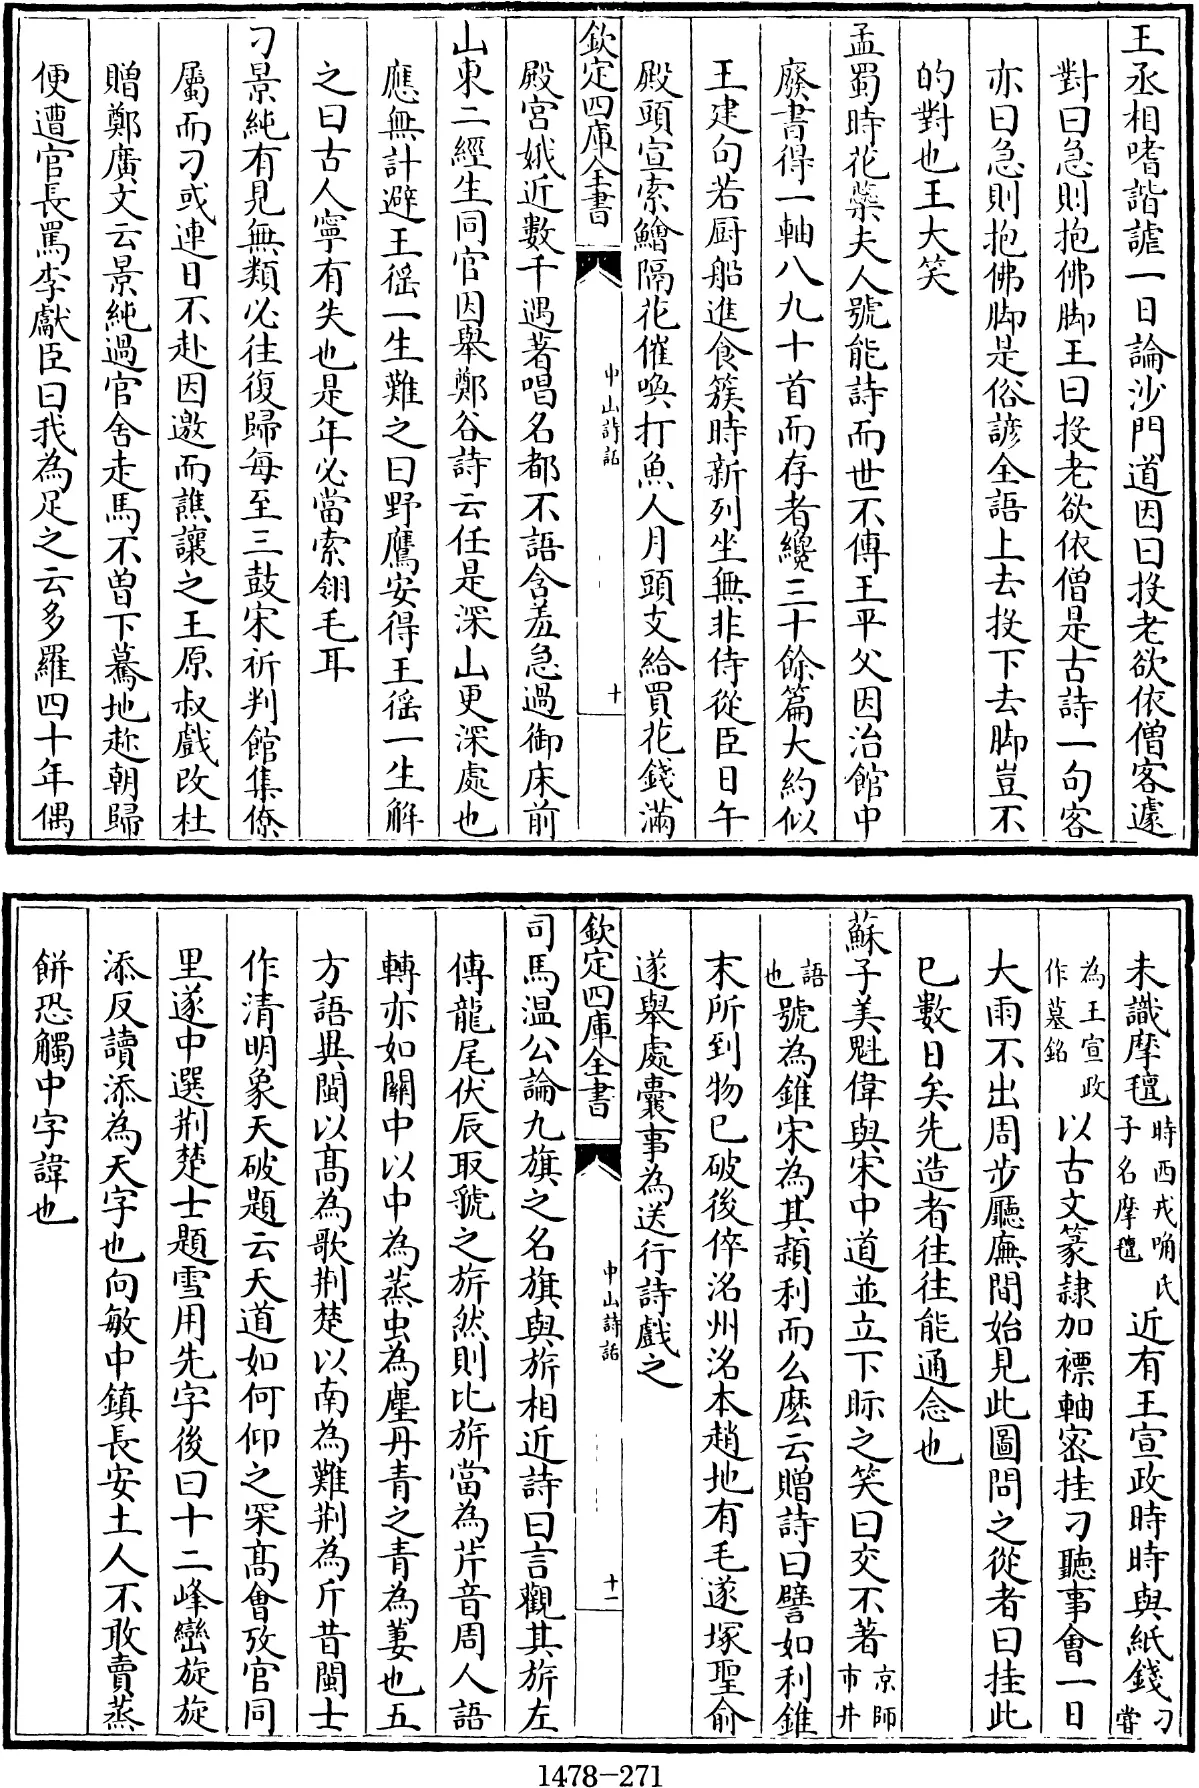 王丞相嗜諧謔一日論沙門道因曰投老欲依僧客遽
對曰急則抱佛脚王曰投老欲依僧是古詩一句客
亦曰急則抱佛脚是俗諺全語上去投下去脚豈不
的對也王大笑
孟蜀時花蘂夫人號能詩而世不傳王平父因治館中
廢書得一軸八九十首而存者纔三十餘篇大約似
王建句若厨船進食簇時新列坐無非侍從臣日午
殿頭宣索鱠隔花催喚打魚人月頭支給買花錢滿
欽定四庫全書 中山詩話 十
殿宮娥近數千遇著唱名都不語含羞急過御床前
山東二經生同官因舉鄭谷詩云任是深山更深處也
應無計避王徭一生難之曰野鷹安得王徭一生解
之曰古人寧有失也是年必當索翎毛耳
刁景純有見無類必往復歸每至三鼓宋祈判館集僚
屬而刁或連日不赴因邀而譙讓之王原叔戲改杜
贈鄭廣文云景純過官舍走馬不曾下驀地趂朝歸
便遭官長罵李獻臣曰我為足之云多羅四十年偶
未識摩氊時西戎唃氏子名摩氊近有王宣政時時與紙錢刁嘗
為王宣政作墓銘以古文篆隷加褾軸密挂刁聽事會一日
大雨不出周步廳廡間始見此圖問之從者曰挂此
已數日矣先造者往往能通念也
蘇子美魁偉與宋中道並立下眎之笑曰交不著京師市井
語也號為錐宋為其潁利而么麽云贈詩曰譬如利錐
末所到物已破後倅洺州洺本趙地有毛遂塚聖俞
遂舉處囊事為送行詩戲之
欽定四庫全書 中山詩話 十一
司馬温公論九旗之名旗與旂相近詩曰言觀其旂左
傳龍尾伏辰取虢之旂然則比旂當為芹音周人語
轉亦如關中以中為蒸虫為塵丹青之青為萋也五
方語異閩以髙為歌荆楚以南為難荆為斤昔閩士
作清明象天破題云天道如何仰之罙髙會攷官同
里遂中選荆楚士題雪用先字後曰十二峰巒旋旋
添反讀添為天字也向敏中鎮長安土人不敢賣蒸
餅恐觸中字諱也
1478-271